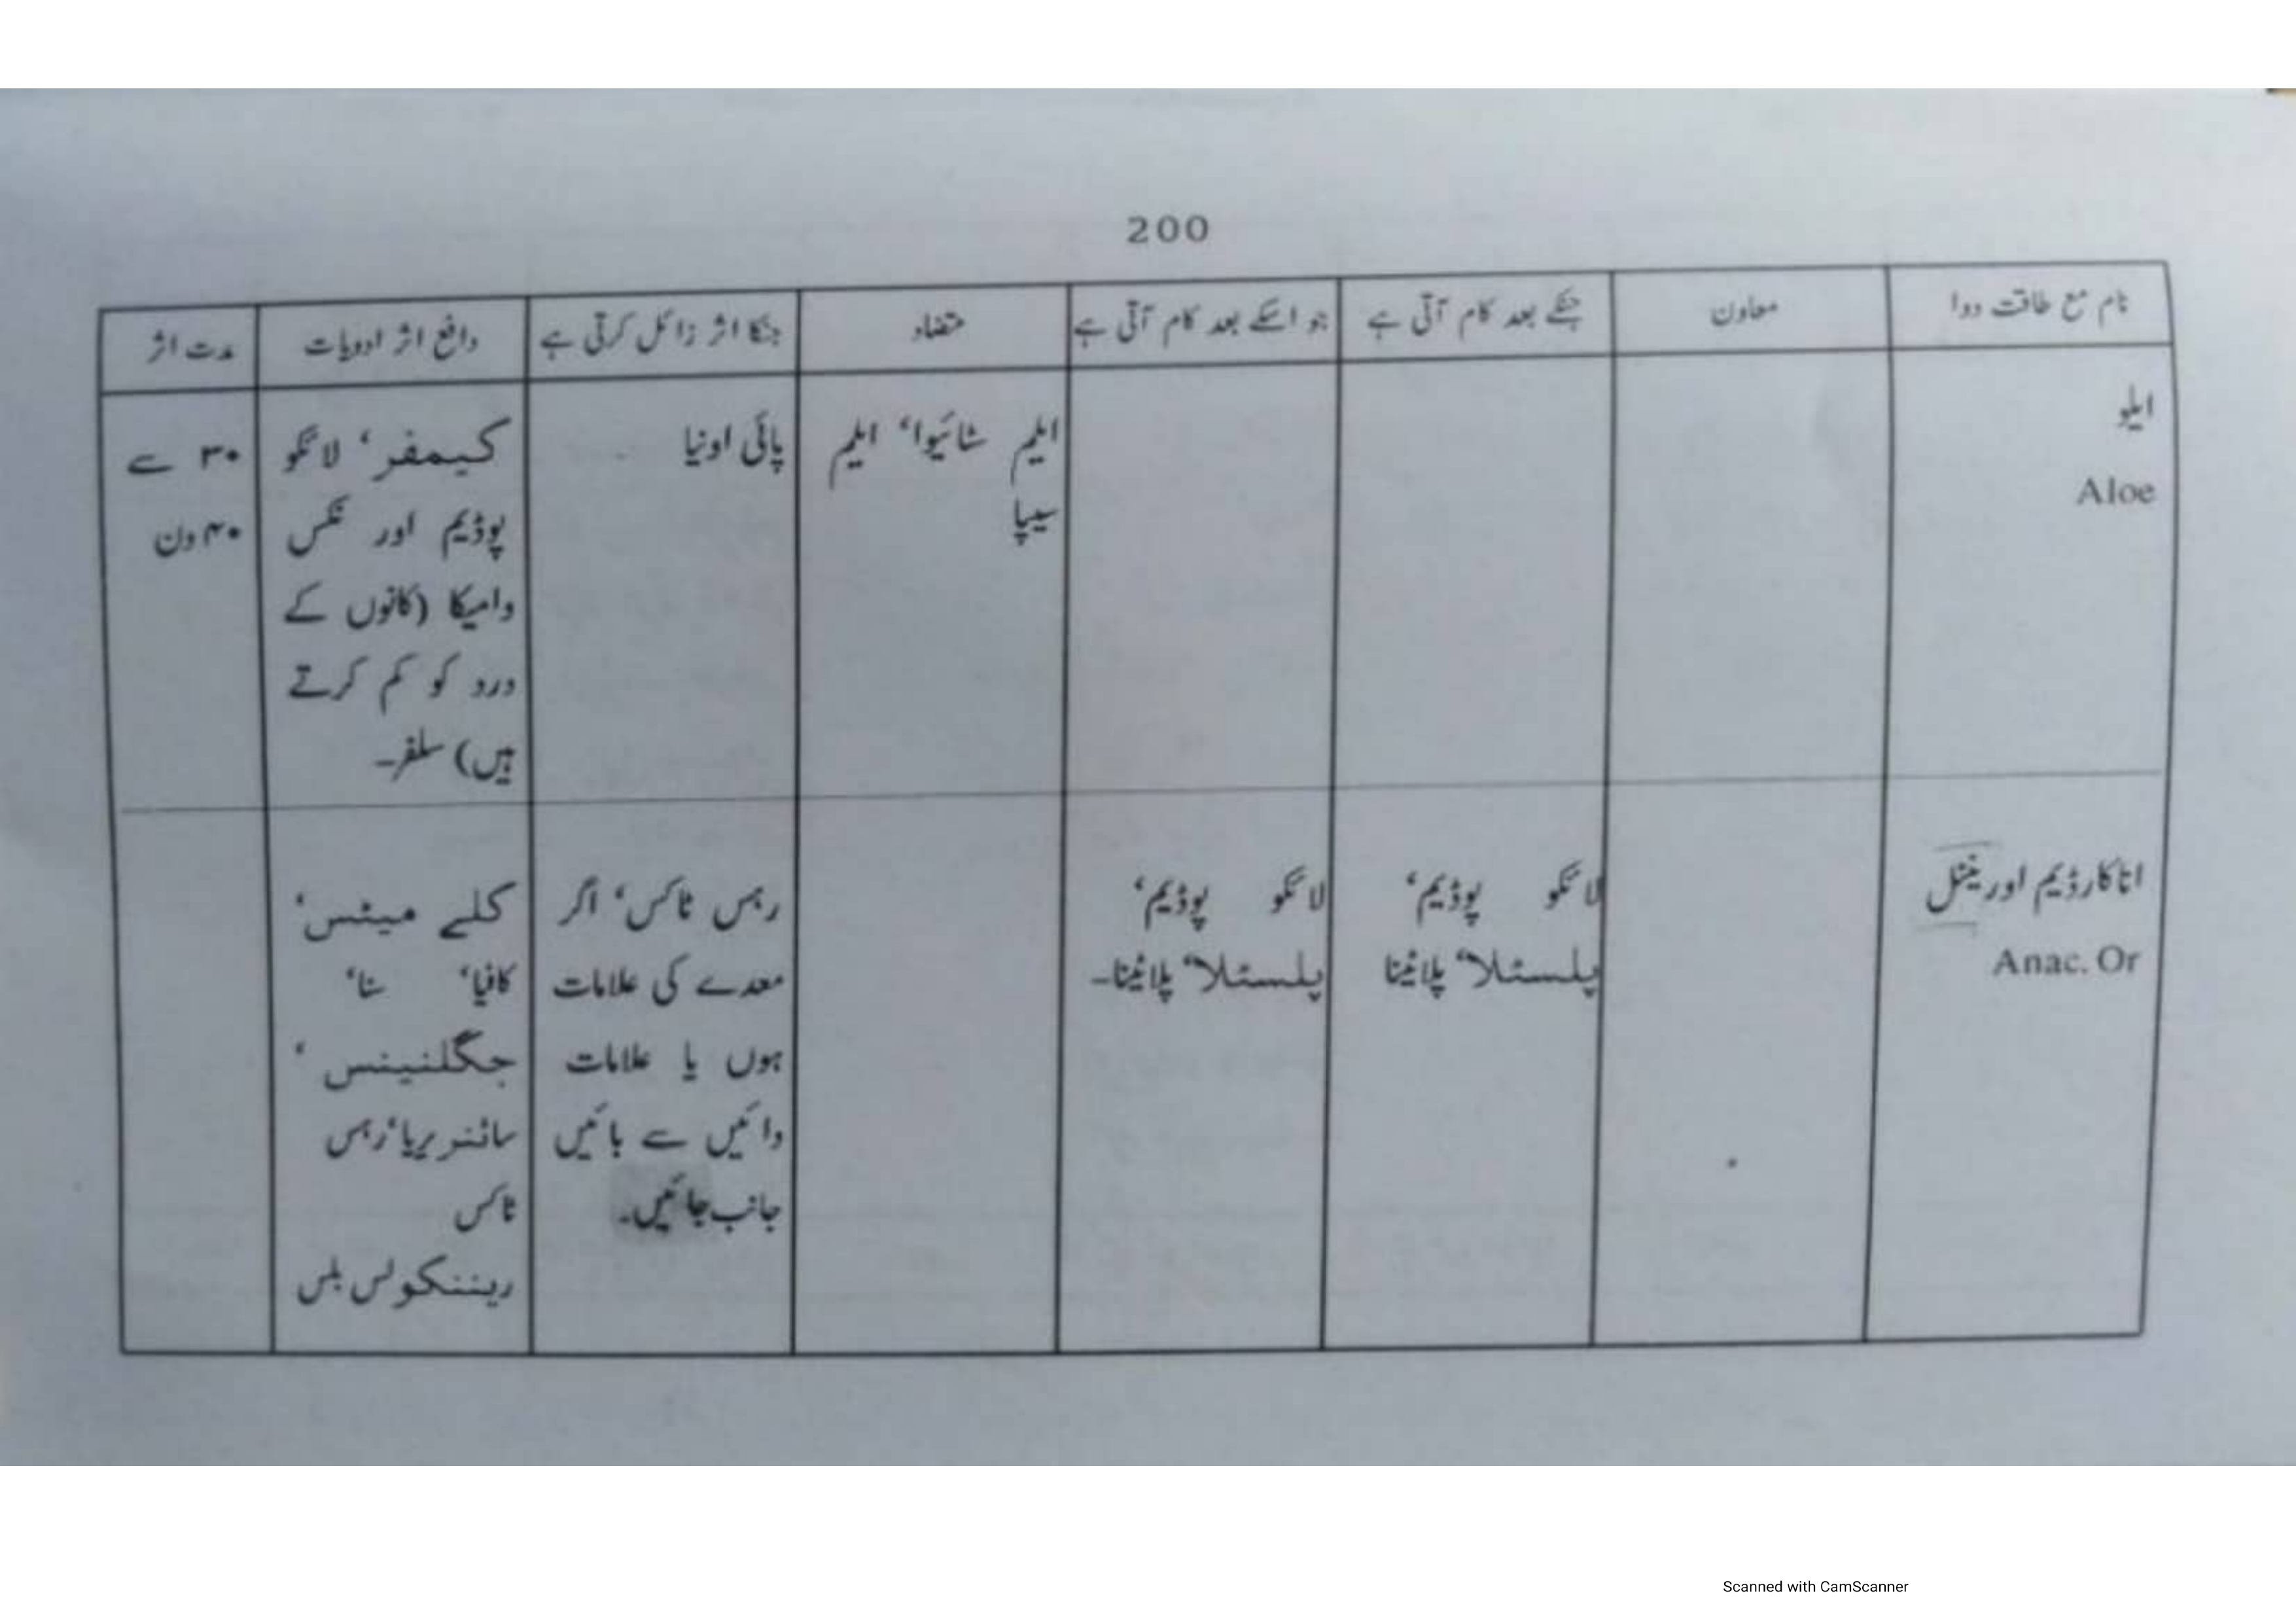 200
نام مع طاقت دوا
معاون
جنکے بعد کام آتی ہے
جو اسکے بعد کام آتی ہے
متضاد
جنکا اثر زائل کرتی ہے
دافع اثر ادویات
مدت اثر
ایلو
Aloe
ایلم شائیوا، ایلم
سیپا
پائی اونیا
کیمفر، لائکو
پوڈیم اور نکس
وامیکا (کانوں کے
درد کو کم کرتے
ہیں) سلفر۔
۳۰ سے
۴۰ دن
اناکارڈیم اورینٹل
Anac. Or
لائکو پوڈیم،
پلسٹلا، پلاٹینا
لائکو پوڈیم،
پلسٹلا، پلاٹینا۔
رہس ٹاکس، اگر
معدے کی علامات
ہوں یا علامات
دائیں سے بائیں
جانب جائیں۔
کلے میٹس،
کافیا، سنا،
جگلنینس،
سائنریریا، رہس
ٹاکس
رینکولس بلس
Scanned with CamScanner